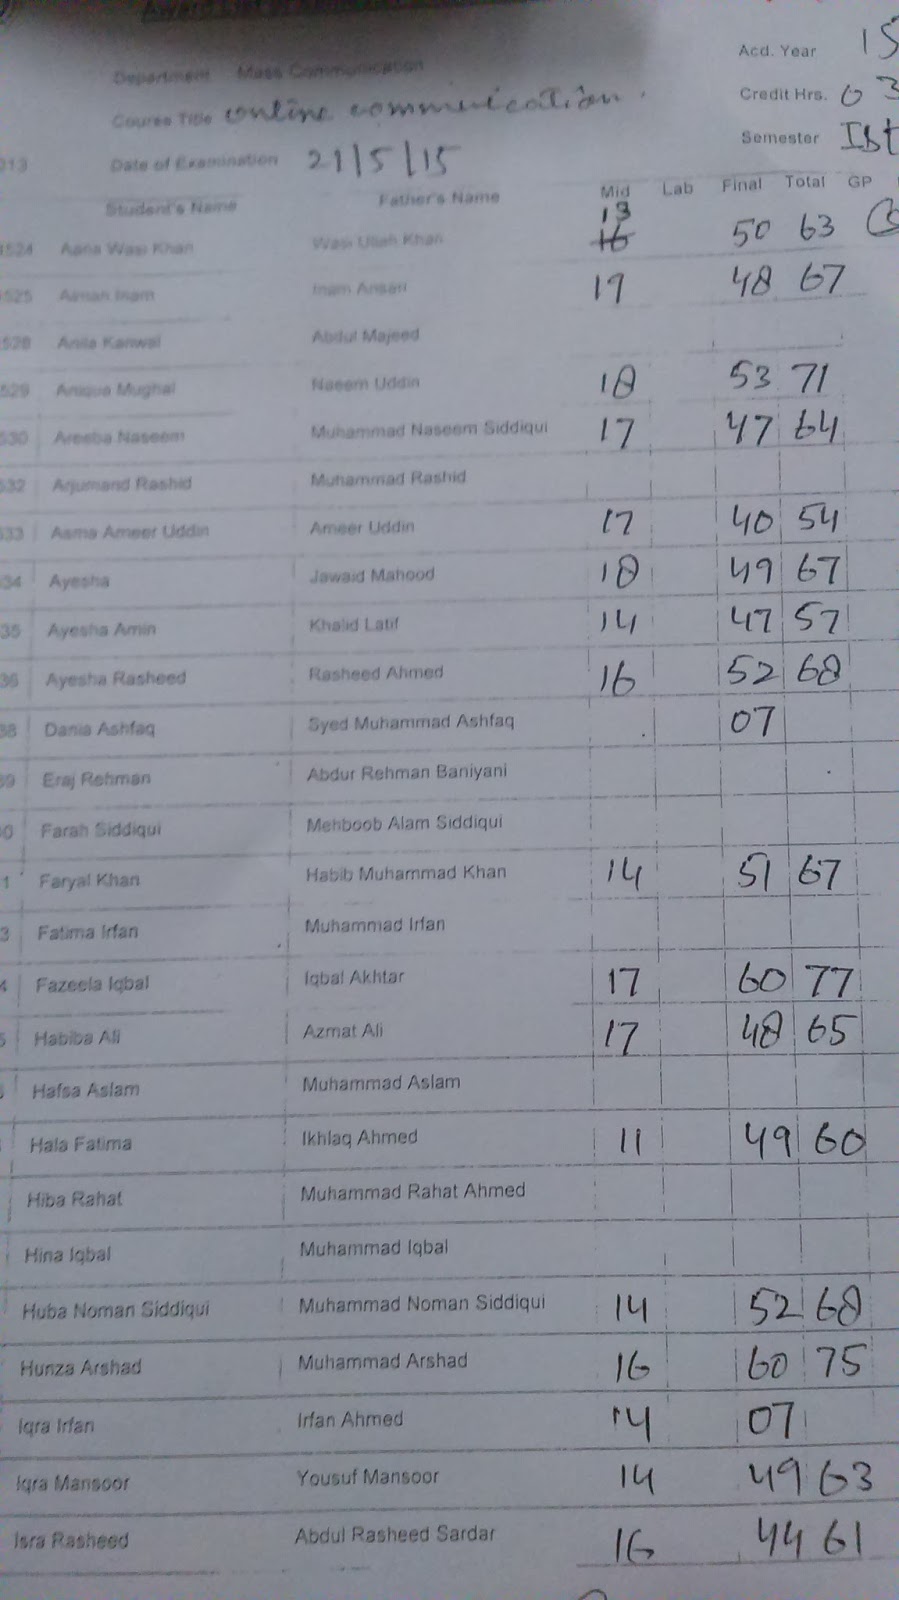 Acd. Year 15
Department Mass Communication
Credit Hrs. 03
Course Title online communication.
Semester Ist
013 Date of Examination 21/5/15
Student's Name Father's Name Mid Lab Final Total GP
13
524 Aana Wasi Khan Wasi Ullah Khan 16 50 63
525 Aiman Inam Inam Ansari 19 48 67
528 Anila Kanwal Abdul Majeed
529 Aniqua Mughal Naeem Uddin 18 53 71
530 Areeba Naseem Muhammad Naseem Siddiqui 17 47 64
532 Arjumand Rashid Muhammad Rashid
533 Asma Ameer Uddin Ameer Uddin 17 40 54
34 Ayesha Jawaid Mahood 18 49 67
35 Ayesha Amin Khalid Latif 14 47 57
36 Ayesha Rasheed Rasheed Ahmed 16 52 68
38 Dania Ashfaq Syed Muhammad Ashfaq 07
39 Eraj Rehman Abdur Rehman Baniyani
0 Farah Siddiqui Mehboob Alam Siddiqui
1 Faryal Khan Habib Muhammad Khan 14 51 67
3 Fatima Irfan Muhammad Irfan
4 Fazeela Iqbal Iqbal Akhtar 17 60 77
5 Habiba Ali Azmat Ali 17 48 65
Hafsa Aslam Muhammad Aslam
Hala Fatima Ikhlaq Ahmed 11 49 60
Hiba Rahat Muhammad Rahat Ahmed
Hina Iqbal Muhammad Iqbal
Huba Noman Siddiqui Muhammad Noman Siddiqui 14 52 68
Hunza Arshad Muhammad Arshad 16 60 75
Iqra Irfan Irfan Ahmed 14 07
Iqra Mansoor Yousuf Mansoor 14 49 63
Isra Rasheed Abdul Rasheed Sardar 16 44 61